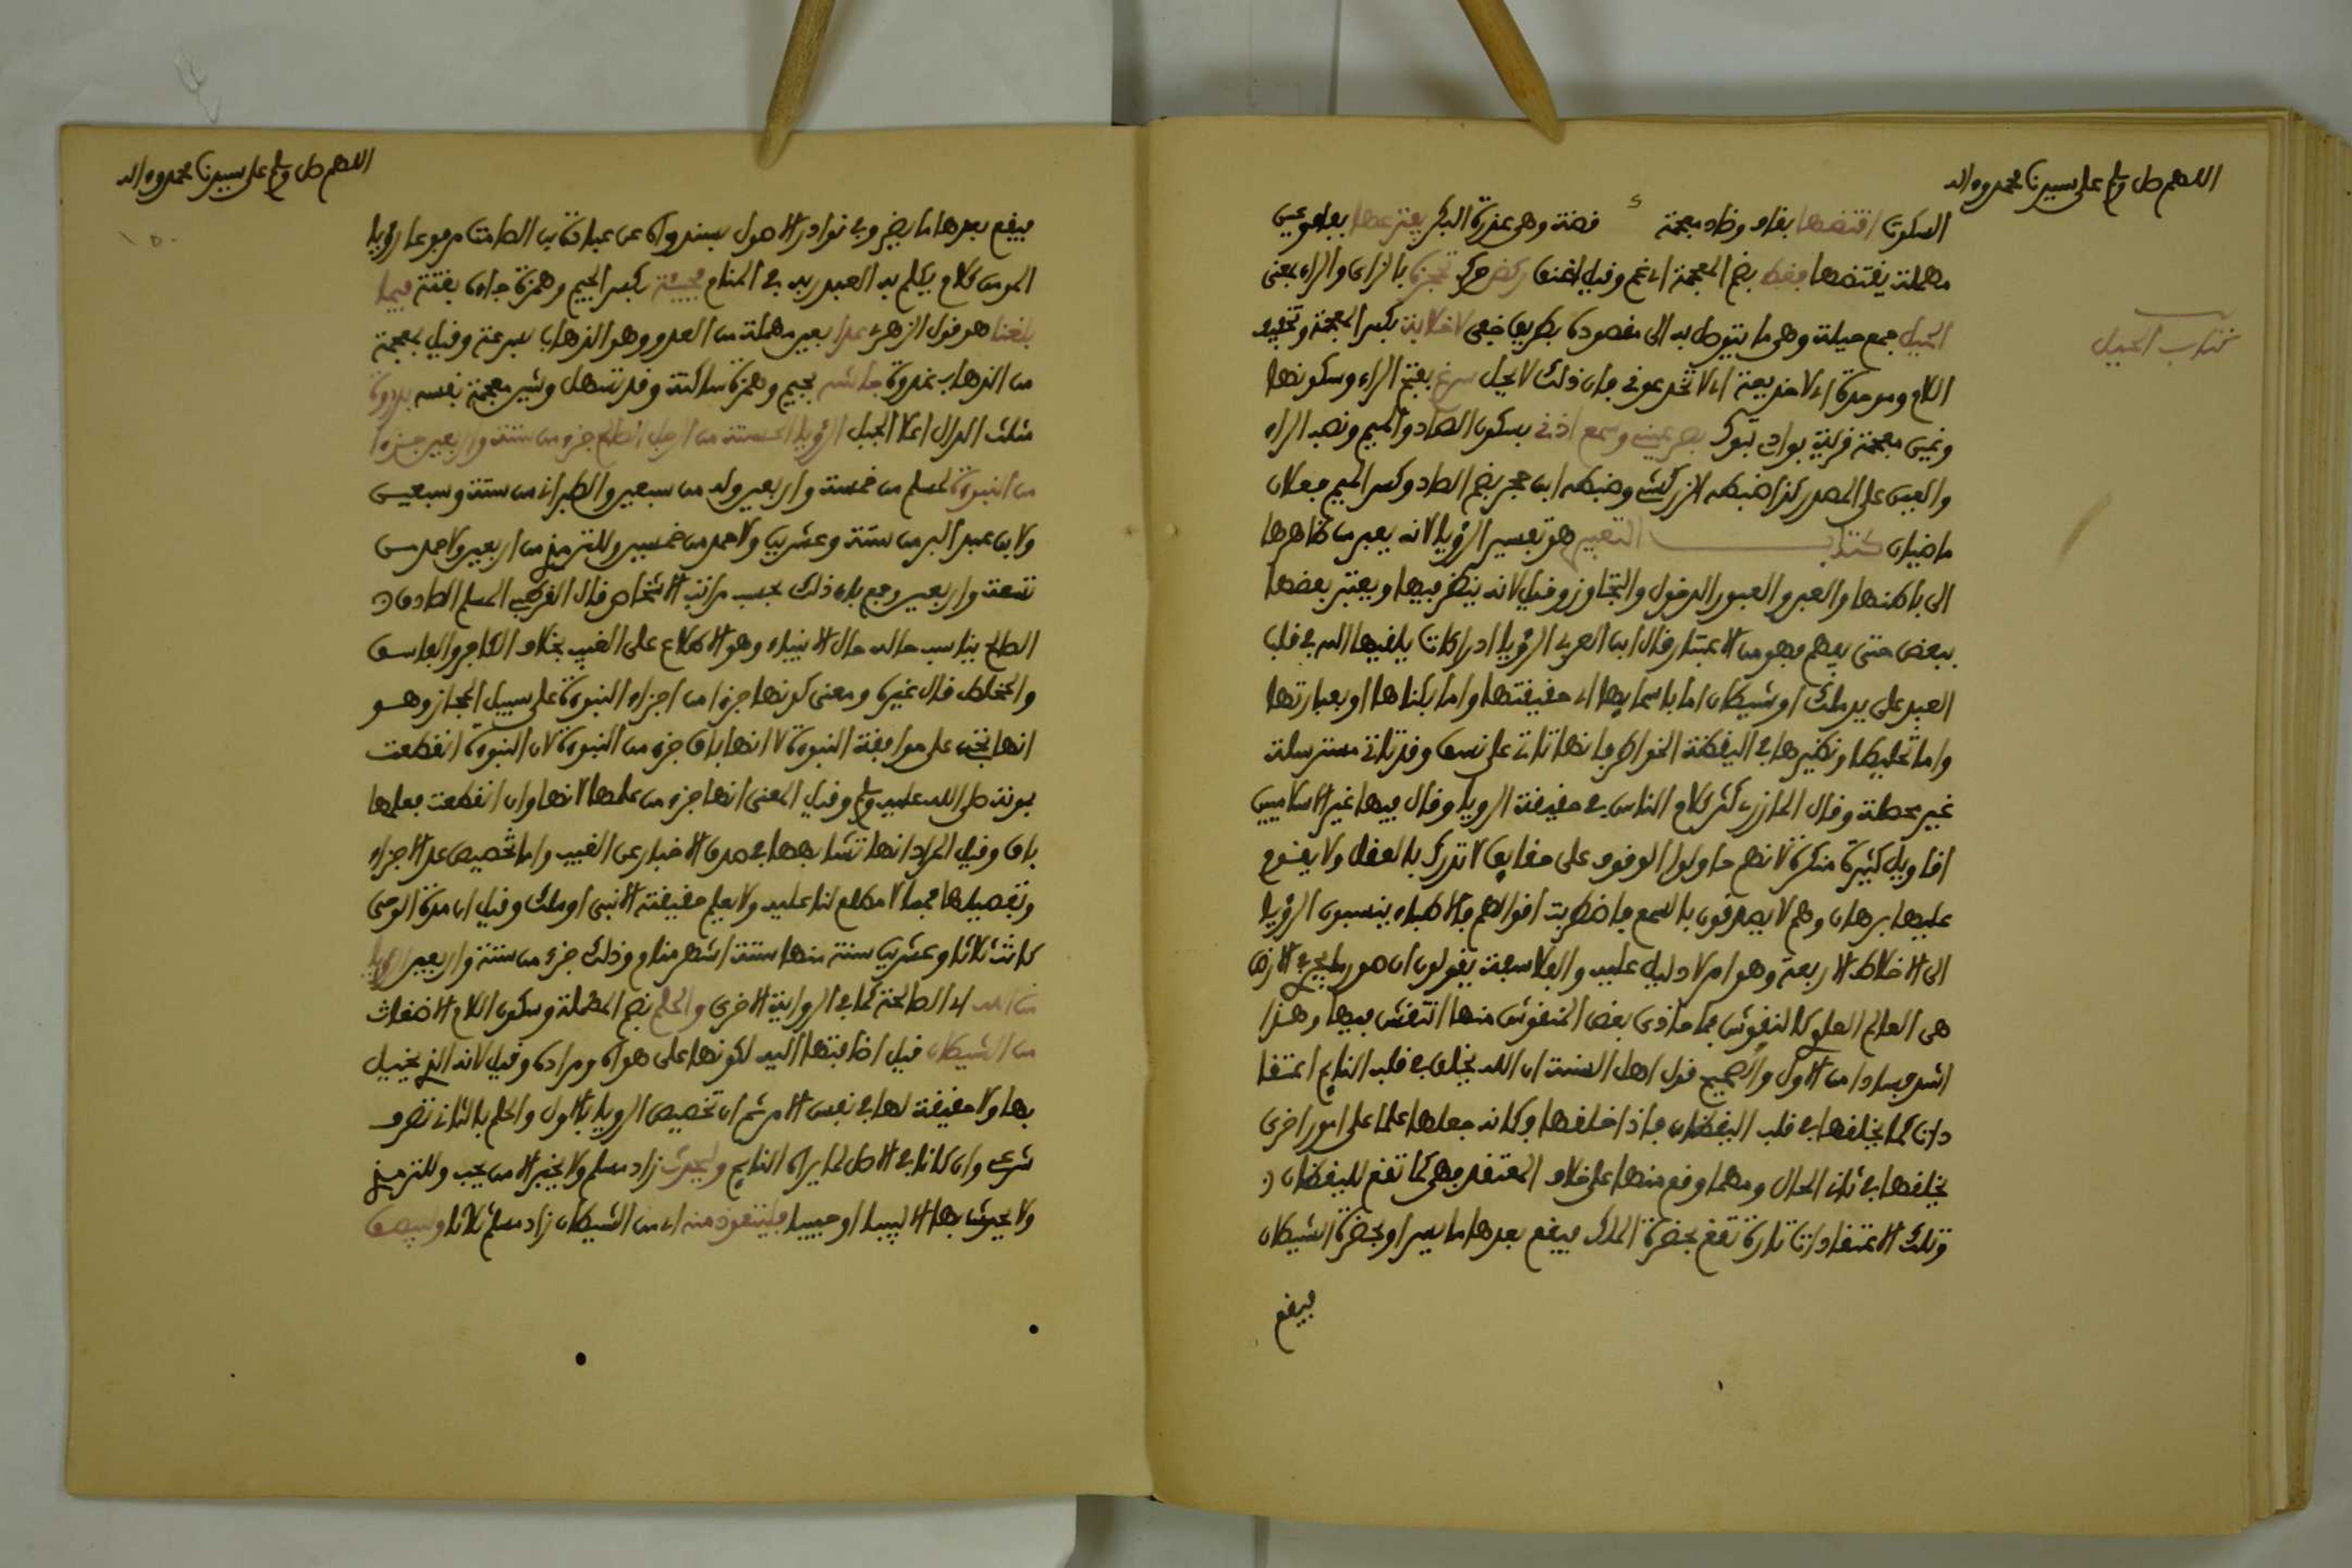 اللهم صل وسلم على سيدنا محمد وءاله
السكوت افتضها بقاف وضاد معجمة قضة وهي عذرة البكر يفترعها بفاء وعين
مهملة يفتضها فغط بضم المعجمة اي غم وقيل اختنق ركض حرك تحرزك بالزاي والراء بمعنى
الحيل جمع حيلة وهي ما يتوصل به الى مقصوده بطريق خفي لا خلابة بكسر المعجمة وتخفيف
كتاب الحيل
اللام وموحدة اي لا خديعة اي لا تخدعوني فان ذلك لا يحل سرغ بفتح الراء وسكونها
وغين معجمة قرية بوادي تبوك بصر عيني وسمع اذني بسكون الصاد والميم ونصب الراء
والعين على المصدر كذا ضبطه الزركشي وضبطه ابن حجر بضم الصاد وكسر الميم فعلان
ماضيان كتاب التعبير هو تفسير الرؤيا لانه يعبر من ظاهرها
الى باطنها والعبر والعبور الدخول والتجاوز وقيل لانه ينظر فيها ويعتبر بعضها
ببعض حتى يفهم فهو من الاعتبار قال ابن العربي الرؤيا ادراكات يلقيها الله في قلب
العبد على يد ملك او شيطان اما باسمايها اي حقيقتها واما بكناها او بعبارتها
واما تخليط ونظيرها في اليقظة الخواطر فانها تاتي على نسق وقد تاتي مسترسلة
غير محصلة وقال المازري كثر كلام الناس في حقيقة الرويا وقال فيها غير الاسلاميين
اقاويل كثيرة منكرة لانهم حاولوا الوقوف على حقايق لا تدرك بالعقل ولا يقوم
عليها برهان وهم لا يصدقون بالسمع فاضطربت اقوالهم فالاطباء ينسبون الرؤيا
الى الاخلاط الاربعة وهو امر لا دليل عليه والفلاسفة يقولون ان صور ما يجري في الارض
هي العالم العلوي كالنقوش فما حاذى بعض النقوش منها انتقش فيها وهذا
اشد فسادا من الاول والصحيح قول اهل السنة ان الله يخلق في قلب النايم اعتقا
دات كما يخلقها في قلب اليقظان فاذا خلقها وكانه جعلها علما على امور اخرى
يخلقها في ثاني الحال ومهما وقع منها على خلاف المعتقد فهي كما تقع لليقظان
وتلك الاعتقادات تارة تقع بحضرة الملك فيقع بعدها ما يسر او بحضرة الشيطان
فيقع
اللهم صل وسلم على سيدنا محمد وءاله
فيقع بعدها ما يضر وفي نوادر الاصول بسند واه عن عبادة بن الصامت مرفوعا رؤيا
المومن كلام يكلم به العبد ربه في المنام فجئه بكسر الجيم وهمزة جاءه بغتة فيما
بلغنا هو قول الزهري عدا بعين مهملة من العدو وهو الذهاب بسرعة وقيل بمعجمة
من الذهاب غدوة جاشه بجيم وهمزة ساكنة وقد تسهل وشين معجمة نفسه بذروة
مثلث الذال اعلا الجبل الرؤيا الحسنة من الرجل الصالح جزء من ستة واربعين جزءا
من النبوة لمسلم من خمسة واربعين وله من سبعين والطبراني من ستة وسبعين
ولابن عبد البر من ستة وعشرين ولاحمد من خمسين وللترمذي من اربعين ولاحمد من
تسعة واربعين وجمع بان ذلك بحسب مراتب الاشخاص قال القرطبي المسلم الصادق
الصالح يناسب حاله حال الانبياء وهو الاطلاع على الغيب بخلاف الكافر والفاسق
والمخلط قال غيره ومعنى كونها جزءا من اجزاء النبوة على سبيل المجاز وهو
انها تجيء على موافقة النبوة لا انها باق جزء من النبوة لان النبوة انقطعت
بموته صلى الله عليه وسلم وقيل المعنى انها جزء من علمها لانها وان انقطعت فعلمها
باق وقيل المراد انها تشابهها في صدق الاخبار عن الغيب واما تخصيص عدد الاجزاء
وتفصيلها فمما لا مطلع لنا عليه ولا يعلم حقيقته الا نبي او ملك وقيل ان مدة الوحي
كانت ثلاثا وعشرين سنة منها ستة اشهر منام وذلك جزء من ستة واربعين الرويا
من الله اي الصالحة كما في الرواية الاخرى والحلم بضم المهملة وسكون اللام الاضغاث
من الشيطان قيل اضافتها اليه لكونها على هواه ومراده وقيل لانه الذي يخيل
بها ولا حقيقة لها في نفس الامر ثم ان تخصيص الرويا بالاول والحلم بالثاني تصرف
شرعي وان كانا في الاصل لما يراه النايم وليحدث زاد مسلم ولا يخبر الا من يحب وللترمذي
ولا يحدث بها الا لبيبا او حبيبا فليتعوذ منه اي من الشيطان زاد مسلم ثلاثا وليبصق